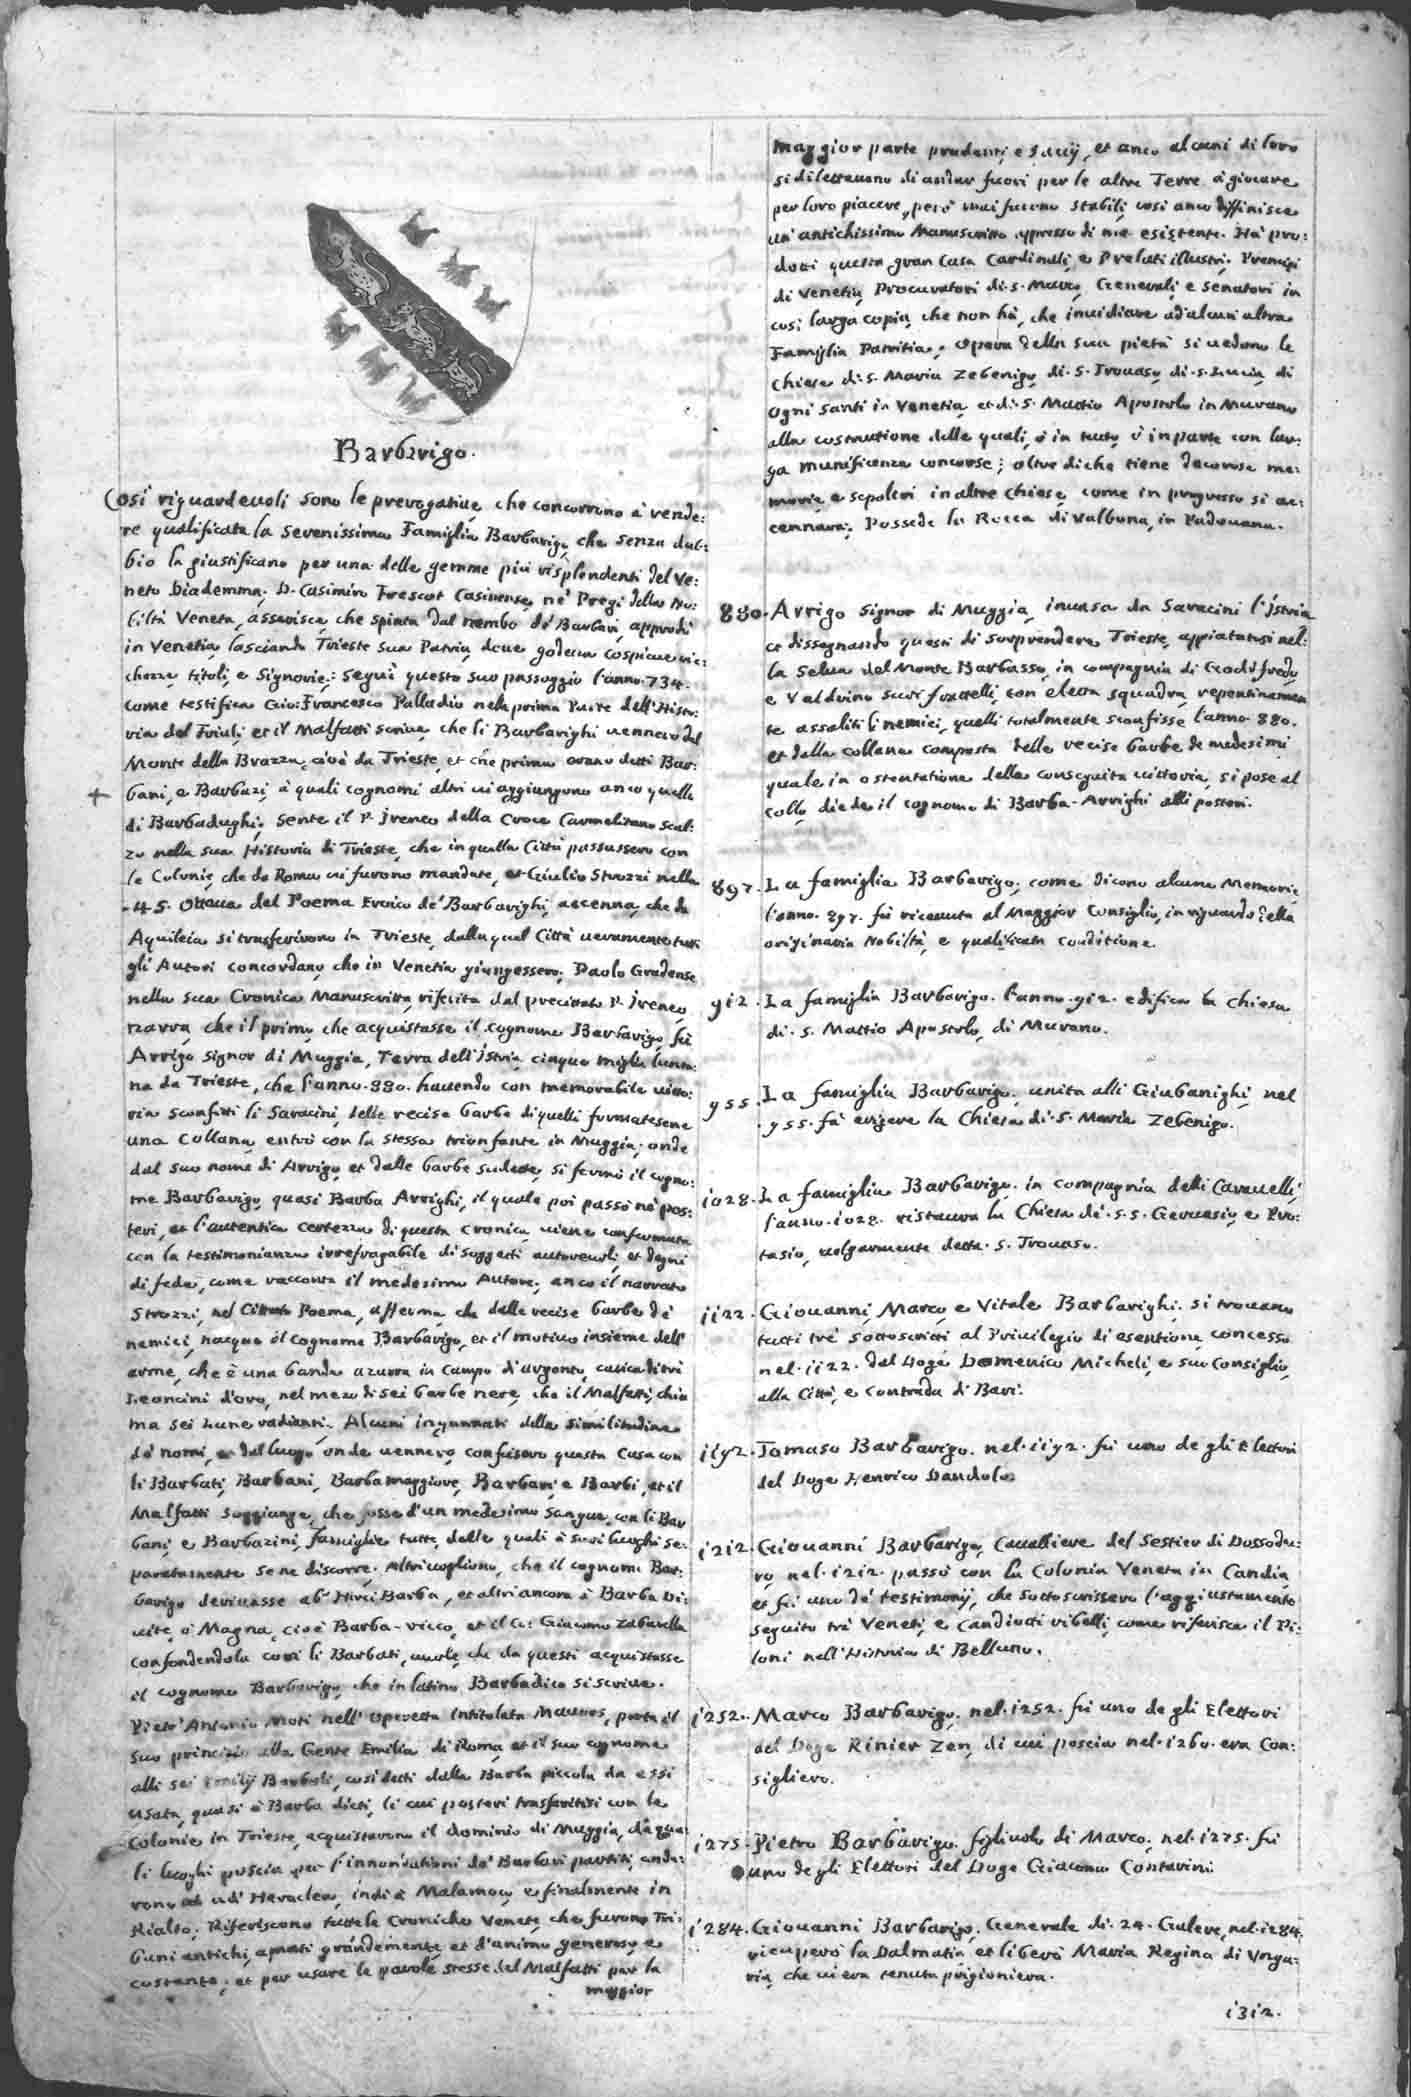 Barbarigo.
Cosi riguardeuoli sono le prerogatiue, che concorrono à rende:
re qualificata la Serenissima Famiglia Barbarigo, che senza dub:
bio la giustificano per una delle gemme più risplendenti del Ve:
neto Diademma; D. Casimiro Frescot Casinense ne' Pregi della No:
biltà Veneta, asserisce, che spinta dal nembo de' Barbari, approdò
in Venetia lasciando Trieste sua Patria, doue godeua cospicue ric:
chezze, titoli, e Signorie; seguì questo suo passaggio l'anno. 734.
come testifica Gio: Francesco Palladio nella prima Parte dell'Histo:
ria del Friuli, et il Malfatti scriue, che li Barbarighi uennero dal
Monte della Brazza, cioè da Trieste, et che prima erano detti Bar:
bani, e Barbazi, à quali cognomi altri ui aggiungono anco quello
di Barbadughi; Sente il P. Ireneo della Croce Carmelitano Scal:
zo nella sua Historia di Trieste, che in quella Città passassero con
le Colonie, che da Roma ui furono mandate, et Giulio Strozzi nella
.45. Ottaua del Poema Eroico de' Barbarighi, accenna, che da
Aquileia si trasferirono in Trieste, dalla qual Città ueramente tutti
gli Autori concordano, che in Venetia giungessero; Paolo Gradense
nella sua Cronica Manuscritta, riferita dal precitato P. Ireneo,
narra, che il primo, che acquistasse il cognome Barbarigo, fù
Arrigo Signor di Muggia, Terra dell'Istria, cinque miglia lonta:
na da Trieste, che l'anno. 880. hauendo con memorabile uitto:
ria sconfitti li Saracini, delle recise barbe di quelli formatesene
una Collana, entrò con la stessa trionfante in Muggia; onde
dal suo nome di Arrigo, et dalle barbe sudette, si formò il cogno:
me Barbarigo, quasi Barba Arrighi, il quale poi passò ne' pos:
teri, et l'autentica certezza di questa cronica, uiene confermata
con la testimonianza irrefragabile di soggetti autoreuoli, et degni
di fede, come racconta il medesimo Autore; anco il narrato
Strozzi, nel Cittato Poema, afferma, che dalle recise barbe de'
nemici, nacque il Cognome Barbarigo, et il motiuo insieme dell'
arme, che è una banda azurra in Campo d'argento, carica di trè
Leoncini d'oro, nel mezo di sei barbe nere, che il Malfatti, chia
ma sei Lune radianti. Alcuni ingannati dalla similitudine
de' nomi, e dal luogo onde uennero, confusero questa Casa con
li Barbati, Barbani, Barbamaggiore, Barbari e Barbi, et il
Malfatti soggiunge, che fosse d'un medesimo sangue con li Bar
bani, e Barbarini, famiglie tutte, delle quali à suoi luoghi se:
paratamente se ne discorre. Altri uogliono, che il cognome Bar:
barigo deriuasse ab' Hirci Barba, et altri ancora à Barba Di:
uite, ò Magna, cioè Barba-ricco, et il Co: Giacomo Zabarella
confondendola con li Barbati, uuole, che da questi acquistasse
il cognome Barbarigo, che in latino Barbadico si scriue.
Pietr' Antonio Moti nell' Operetta Intitolata porta il
suo principio alla Gente Emilia di Roma, et il suo cognome
alli sei Emilij Barbuli, cosi detti dalla Barba piccola da essi
usata, quasi à Barba dicti, li cui posteri trasferitisi con le
Colonie in Trieste, acquistarono il dominio di Muggia, da qua:
li luoghi poscia per l'innondationi de' Barbari partiti, anda:
rono ad' Heraclea, indi à Malamoco, e finalmente in
Rialto; Riferiscono tutte le Croniche Venete, che furono Tri:
buni antichi, amati grandemente, et d'animo generoso, e
costante; et per usare le parole stesse del Malfatti per la
maggior
maggior parte prudenti, e sauij, et anco alcuni di loro
si dilettauano di andar fuori per le altre Terre à giocare
per loro piacere, però mai furono stabili, cosi anco diffinisce
un' antichissimo Manuscritto appresso di me esistente. Hà pro:
dotti questa gran Casa Cardinali, e Prelati illustri; Prencipi
di Venetia, Procuratori di. S. Marco, Generali, e Senatori in
cosi larga copia, che non hà, che inuidiare ad alcun' altra
Famiglia Patritia; opera della sua pietà si uedono le
Chiese di. S. Maria Zebenigo, di. S. Trouaso, di. S. Lucia, di
Ogni Santi in Venetia, et di. S. Mattio Apostolo in Murano
alla costrutione delle quali, ò in tutto ò in parte con lar:
ga munificenza concorse; oltre di che tiene decorose me:
morie, e sepolcri in altre Chiese, come in progresso si ac:
cennarà; Possede la Rocca di Valbona, in Padouana.
880. Arrigo Signor di Muggia, inuasa da Saracini l'Istria
et dissegnando questi di sorprendere Trieste, appiatatosi nel:
la Selua del Monte Barbasso, in compagnia di Godifredo,
e Valdoino suoi fratelli, con eletta squadra, repentinamen
te assaliti li nemici, quelli totalmente sconfisse l'anno. 880.
et dalla collana composta delle recise barbe de medesimi
quale in ostentatione della conseguita uittoria, si pose al
collo, diede il cognome di Barba-Arrighi alli posteri.
897. La famiglia Barbarigo, come dicono alcune Memorie,
l'anno. 897. fù riceuuta al Maggior Consiglio, in riguardo della
originaria Nobiltà, e qualificata conditione.
912. La famiglia Barbarigo. l'anno. 912. edifica la Chiesa
di. S. Mattio Apostolo, di Murano.
955. La famiglia Barbarigo, unita alli Giubanighi, nel
.955. fà erigere la Chiesa di. S. Maria Zebenigo.
1028. La famiglia Barbarigo. in compagnia delli Carauelli,
l'anno. 1028. ristaura la Chiesa de'. S.S. Geruasio, e Pro:
tasio, uolgarmente detta. S. Trouaso.
1122. Giouanni, Marco, e Vitale Barbarighi. si trouano
tutti trè sottoscritti al Priuilegio di esentione, concesso
nel. 1122. dal Doge Domenico Micheli, e suo Consiglio,
alla Città, e Contrada di Bari.
1192. Tomaso Barbarigo. nel. 1192. fù uno de gli Elettori
del Doge Henrico Dandolo.
1212. Giouanni Barbarigo, Caualliere del Sestier di Dossodu:
ro, nel. 1212. passò con la Colonia Veneta in Candia,
et fù uno de' testimonij, che sottoscrissero l'aggiustamento
seguito trà Veneti, e Candiotti ribelli, come riferisce il Pi:
loni nell'Historia di Belluno.
1252. Marco Barbarigo. nel. 1252. fù uno de gli Elettori
del Doge Rinier Zen, di cui poscia nel. 1260. era Con:
sigliero.
1275. Pietro Barbarigo. figliuolo di Marco, nel. 1275. fù
uno de gli Elettori del Doge Giacomo Contarini
1284. Giouanni Barbarigo, Generale di. 24. Galere, nel. 1284.
ricuperò la Dalmatia, et liberò Maria Regina di Vnga:
ria, che ui era tenuta prigioniera.
1312.